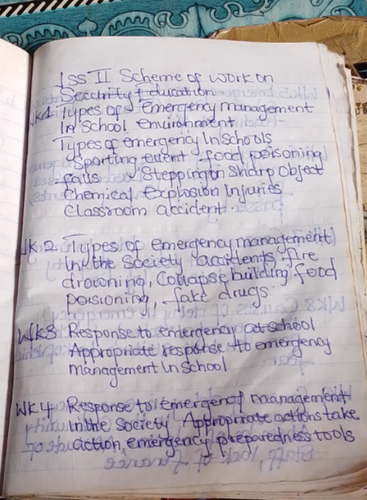 Jss II Scheme of work on
Security Education
Wk1 Types of emergency management
In School environment
Types of emergency In Schools
Sporting event food poisoning
falls, Stepping to sharp object
Chemical Explosion Injuries
Classroom accident
Wk2 Types of emergency management
In the Society accidents, fire
drowning, Collapse building, food
poisoning, fake drugs
Wk3 Response to emergency at school
Appropriate response to emergency
management In School
Wk4 Response to emergency management
In the Society, Appropriate actions take
action, emergency preparedness tools